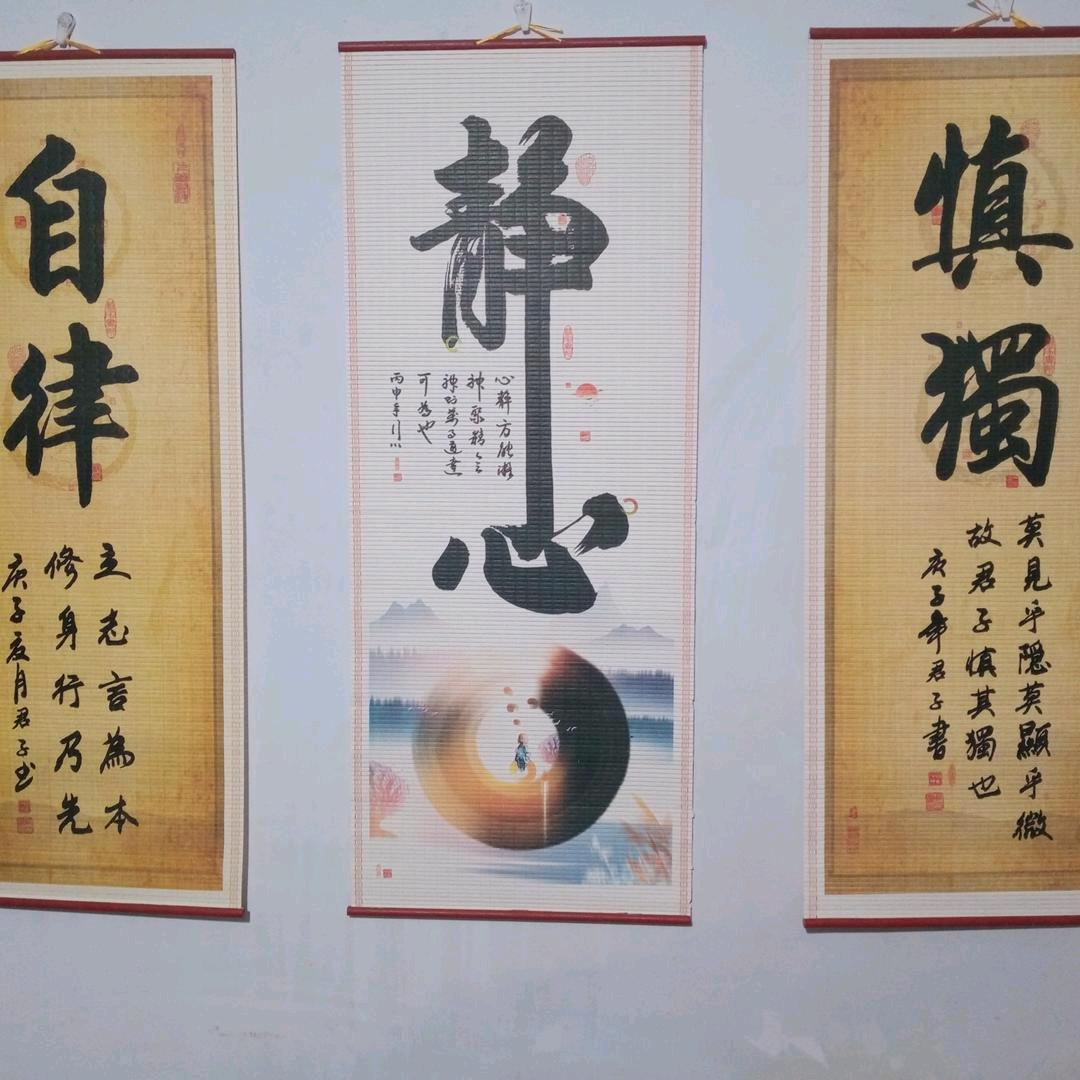 自律
立志言為本
修身行乃先
庚子夏月君子书
靜心
心靜方能凝
神聚精会
萬事通達
可為也
丙申年
慎獨
莫見乎隱莫顯乎微
故君子慎其獨也
庚子年君子書